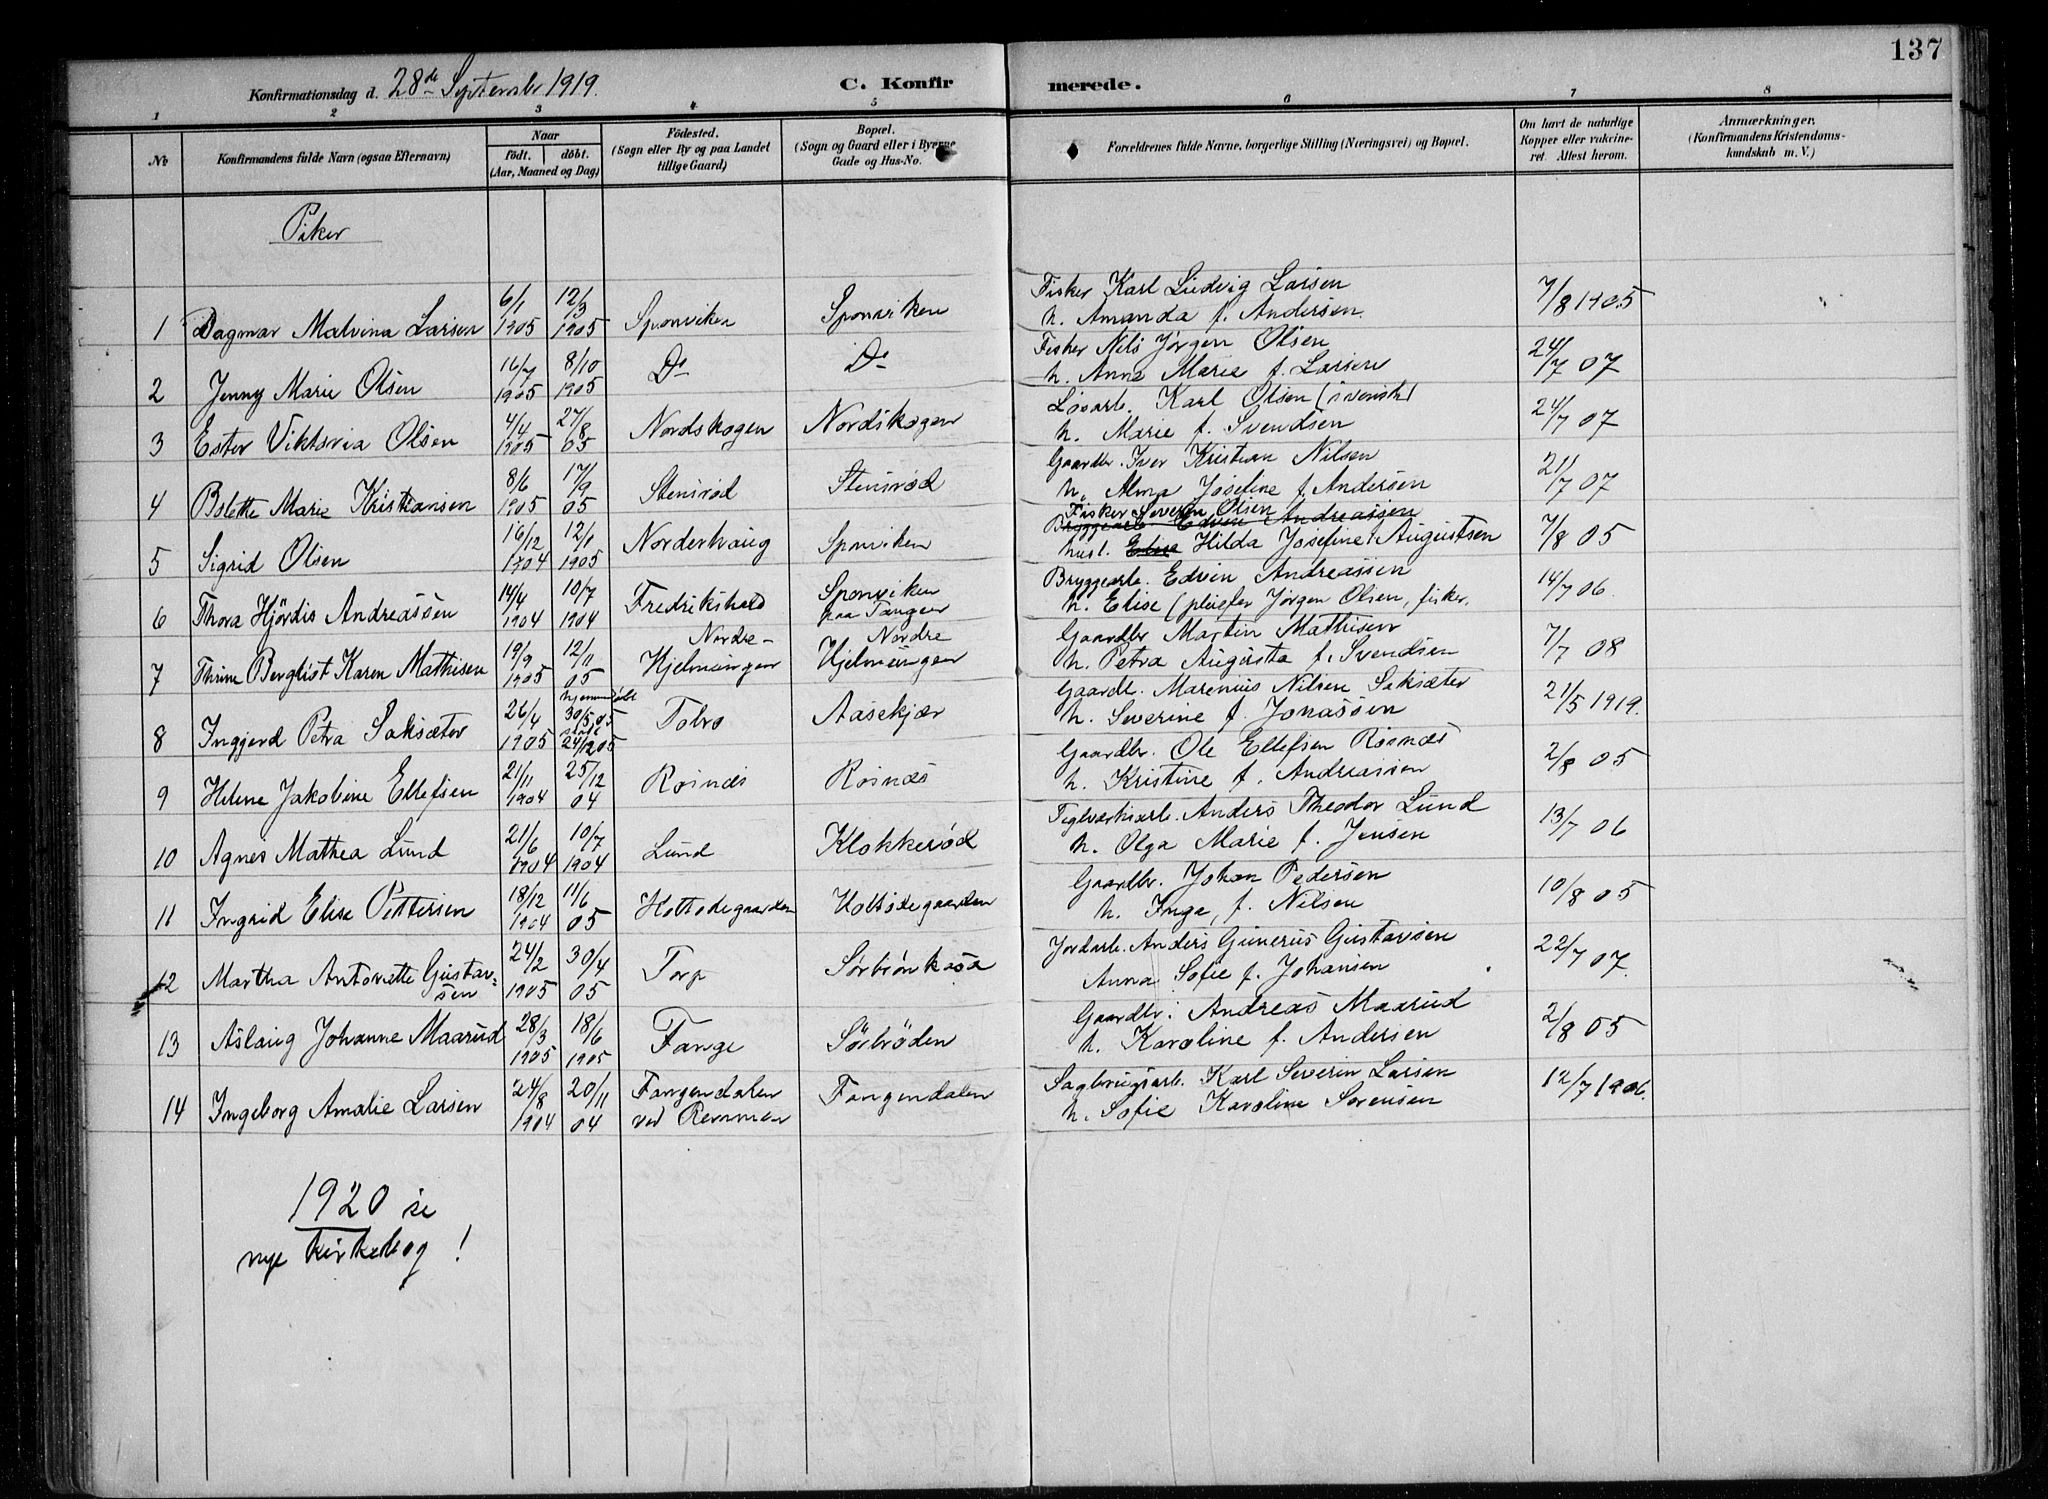 137
Konfirmationsdag d. 28de September 1919.
C. Konfirmerede.
1 2 3 4 5 6 7 8
No
Konfirmandens fulde Navn (ogsaa Efternavn)
Naar
födt. döbt.
(Aar, Maaned og Dag)
Födested.
(Sogn eller By og paa Landet
tillige Gaard)
Bopæl.
(Sogn og Gaard eller i Byerne
Gade og Hus-No.
Forældrenes fulde Navne, borgerlige Stilling (Næringsvei) og Bopæl.
Om havt de naturlige
Kopper eller vakcine-
ret Attest herom.
Anmærkninger.
(Konfirmandens Kristendoms-
kundskab m. V.)
Piker
6/1 12/3 Fisker Karl Ludvig Larsen
1 Dagmar Malvina Larsen 1905 1905 Sponviken Sponviken h. Amanda f. Andersen. 7/8 1905
16/7 8/10 Fisker Nils Jörgen Olsen
2 Jenny Marie Olsen 1905 1905 Do Do h. Anna Marie f. Larsen 24/7 07
4/4 27/8 Løsarb. Karl Olsen (svensk)
3 Ester Viktoria Olsen 1905 05 Nordskogen Nordskogen h. Marie f. Svendsen 24/7 07
8/6 17/9 Gaardbr. Iver Kristian Nilsen
4 Bolette Marie Kristiansen 1905 05 Stensrød Stensrød h. Alma Josefine f. Andersen 21/7 07
Fisker Severin Olsen
16/12 12/1 Bryggearb. Edvin Andreassen
5 Sigrid Olsen 1904 1905 Norderhaug Sponviken hust. Elise Hilda Josefine f. Augustsen 7/8 05
14/4 10/7 Sponviken Bryggearb. Edvin Andreassen
6 Thora Hjördis Andreassen 1904 1904 Fredrikshald paa Tangen h. Elise (pleiefar Jörgen Olsen, fisker. 14/7 06.
19/9 12/11 Nordre- Nordre Gaardbr Martin Mathisen
7 Thrine Bergliot Karen Mathisen 1905 05 Hjelmungen Hjelmungen h. Petra Augusta f. Svendsen 7/7 08
26/4 hjemmedöbt 30/5 05 Gaardb. Marenius Nilsen Saksæter
8 Ingjerd Petra Saksæter 1905 24/12 05 Torvo Aasekjær h. Severine f. Jonassen 21/5 1919.
21/11 25/12 Gaardbr. Ole Ellefsen Røsnæs
9 Helene Jakobine Ellefsen 1904 04 Røsnæs Røsnæs h. Kristine f. Andreassen 2/8 05
21/6 10/7 Teglværksarb. Anders Theodor Lund
10 Agnes Mathea Lund 1904 1904 Lund Klokkerød h. Olga Marie f. Jensen 13/7 06
18/12 11/6 Gaardbr. Johan Pedersen
11 Ingrid Elise Pettersen 1904 05 Holtodegaarden Holtödegaarden h. Inga, f. Nilsen 10/8 05
24/2 30/4 Jordarb. Anders Gunerus Gustavsen
12 Martha Antonette Gustav-
sen 1905 05 Torp Sørbrönkasa Anna Sofie f. Johansen 22/7 07.
28/3 18/6 Gaardbr. Andreas Maarud
13 Aslaug Johanne Maarud 1905 1905 Fange Sörbröden h. Karoline f. Andersen 2/8 05
24/8 20/11 Fangendalen Sagbrugsarb. Karl Severin Larsen
14 Ingeborg Amalie Larsen 1904 04 ved Remmen Fangendalen h. Sofie Karoline Sörensen 12/7 1906.
1920 se
nye kirkebog!